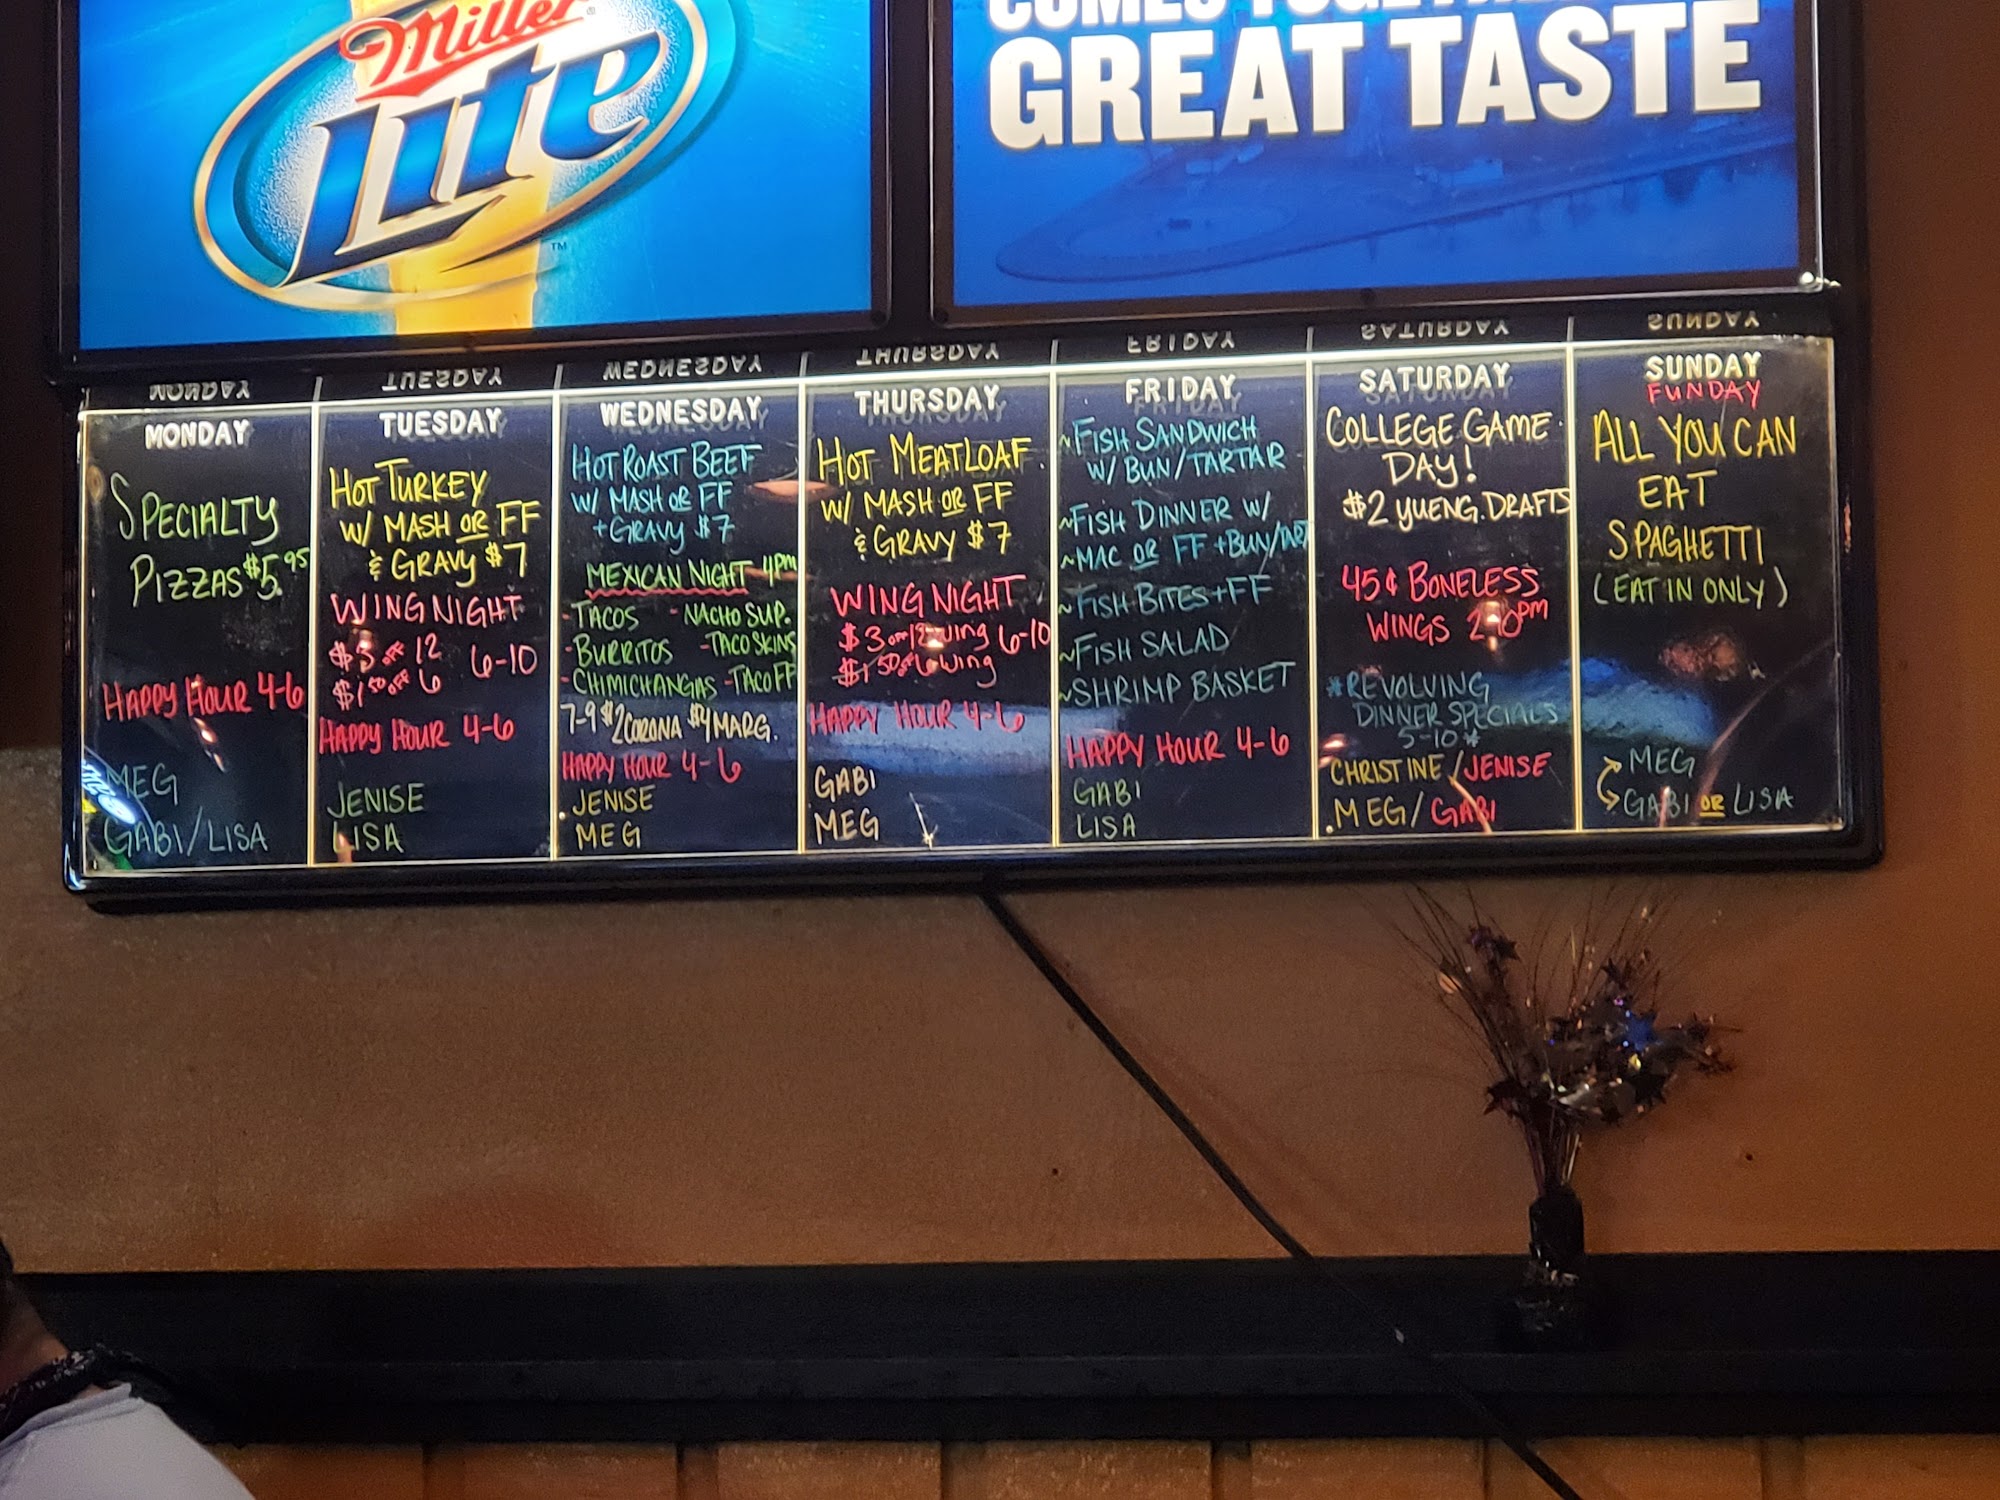 Miller
Lite
™
GREAT TASTE
MONDAY
SPECIALTY
PIZZAS $5.95
HAPPY HOUR 4-6
MEG
GABI/LISA
TUESDAY
HOT TURKEY
W/ MASH OR FF
& GRAVY $7
WING NIGHT
$3 OFF 12 6-10
$1.50 OFF 6
HAPPY HOUR 4-6
JENISE
LISA
WEDNESDAY
HOT ROAST BEEF
W/ MASH OR FF
+ GRAVY $7
MEXICAN NIGHT 4PM
-TACOS -NACHO SUP.
-BURRITOS -TACO SKINS
-CHIMICHANGAS -TACO FF
7-9 $2 CORONA $4 MARG.
HAPPY HOUR 4-6
JENISE
MEG
THURSDAY
HOT MEATLOAF
W/ MASH OR FF
& GRAVY $7
WING NIGHT
$3 OFF 12 Wing 6-10
$1.50 OFF 6 Wing
HAPPY HOUR 4-6
GABI
MEG
FRIDAY
~FISH SANDWICH
W/ BUN/TARTAR
~FISH DINNER W/
~MAC OR FF + BUN/
~FISH BITES + FF
~FISH SALAD
~SHRIMP BASKET
HAPPY HOUR 4-6
GABI
LISA
SATURDAY
COLLEGE GAME
DAY!
$2 YUENG. DRAFTS
45¢ BONELESS
WINGS
*REVOLVING
DINNER SPECIALS
5-10*
CHRISTINE/JENISE
MEG/GABI
SUNDAY
FUNDAY
ALL YOU CAN
EAT
SPAGHETTI
(EAT IN ONLY)
MEG
GABI OR LISA